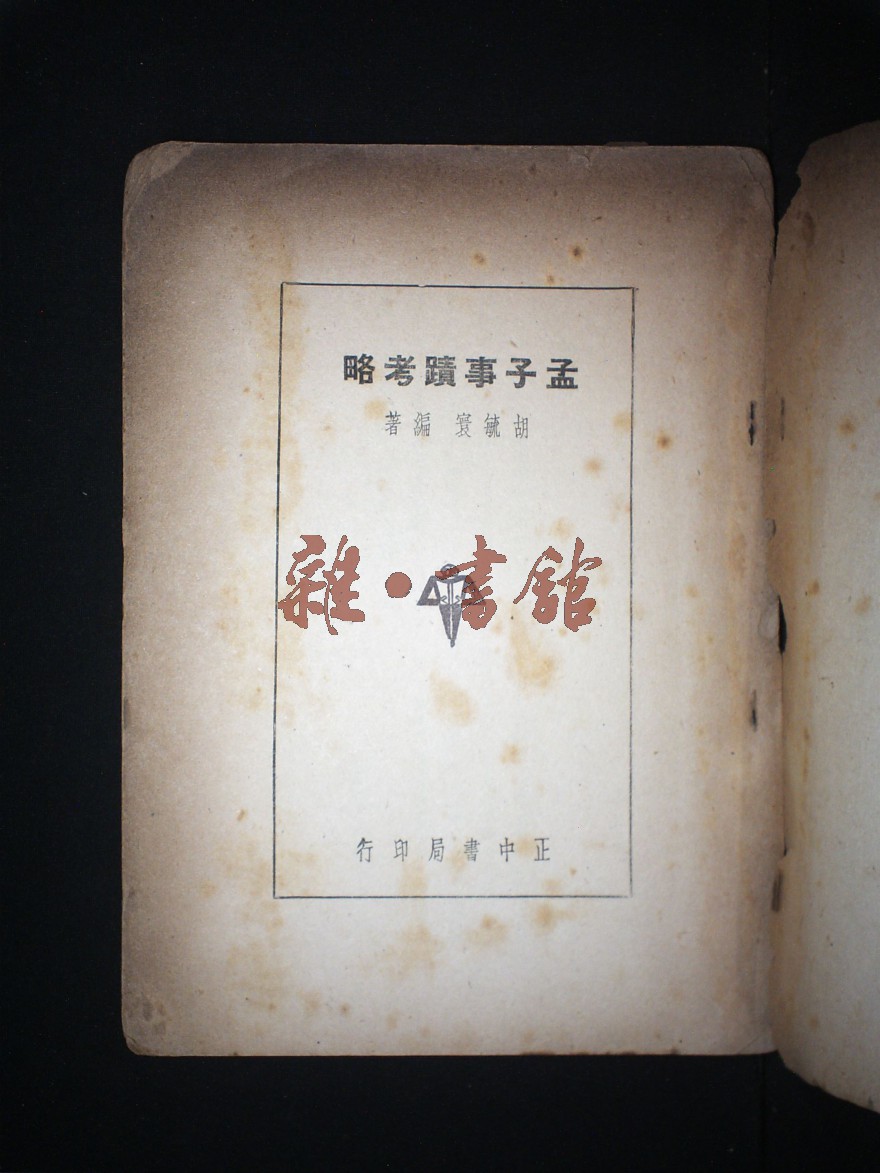 孟子事蹟考略
胡毓寰 編著
雜·書館
正中書局印行